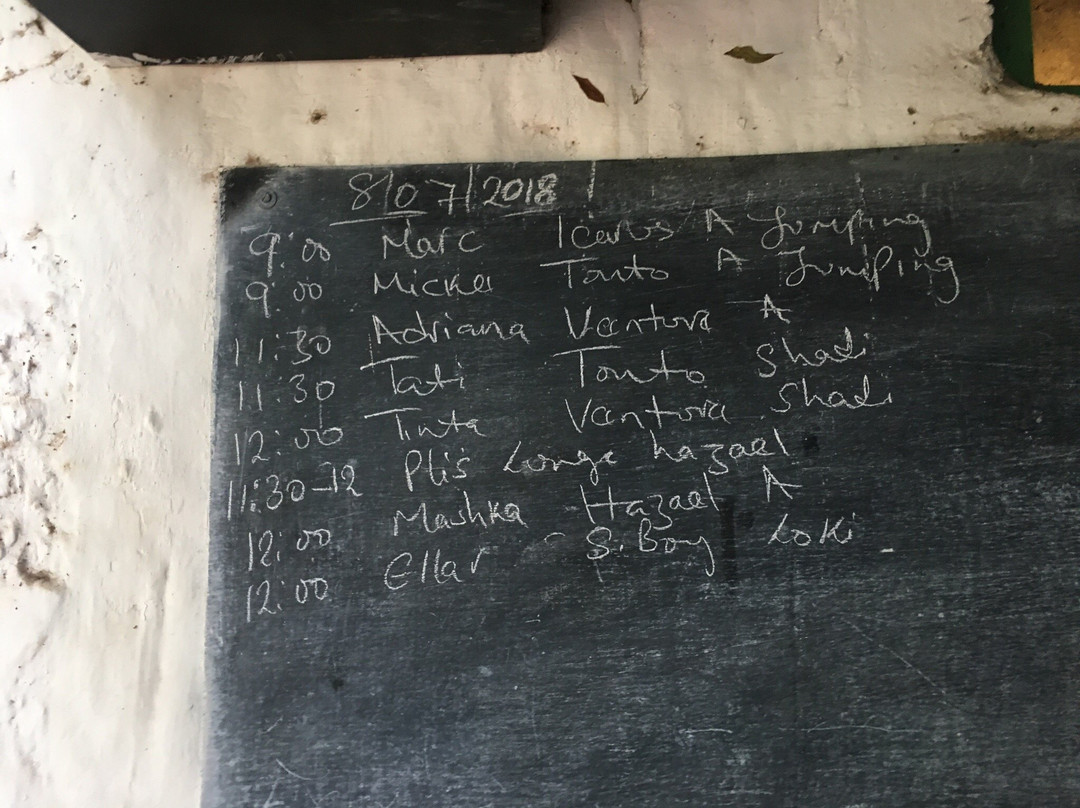 8/07/2018
9:00 Marc Icarus A Jumping
9:00 Mickel Tonto A Jumping
11:30 Adriana Ventora A
11:30 Tati Tonto Shadi
12:00 Tinta Ventora Shadi
11:30-12 Plis Longe hazael
12:00 Mashka Hazael A
12:00 Ellar S.Boy Loki